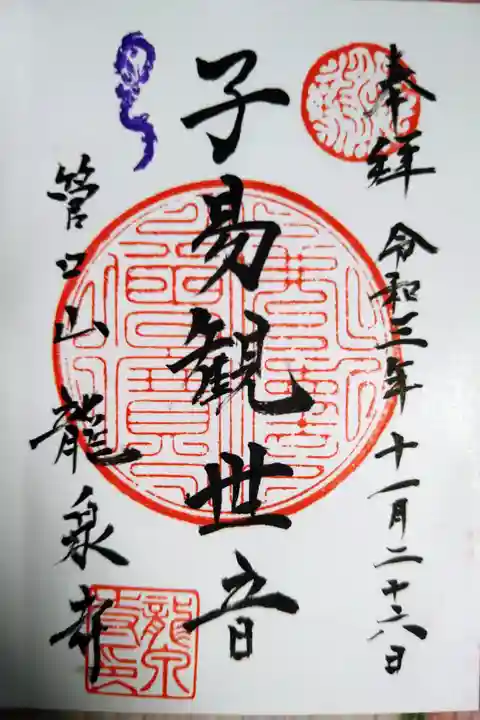 奉拝 令和三年 十一月二十六日
子易観世音
管口山 龍泉寺